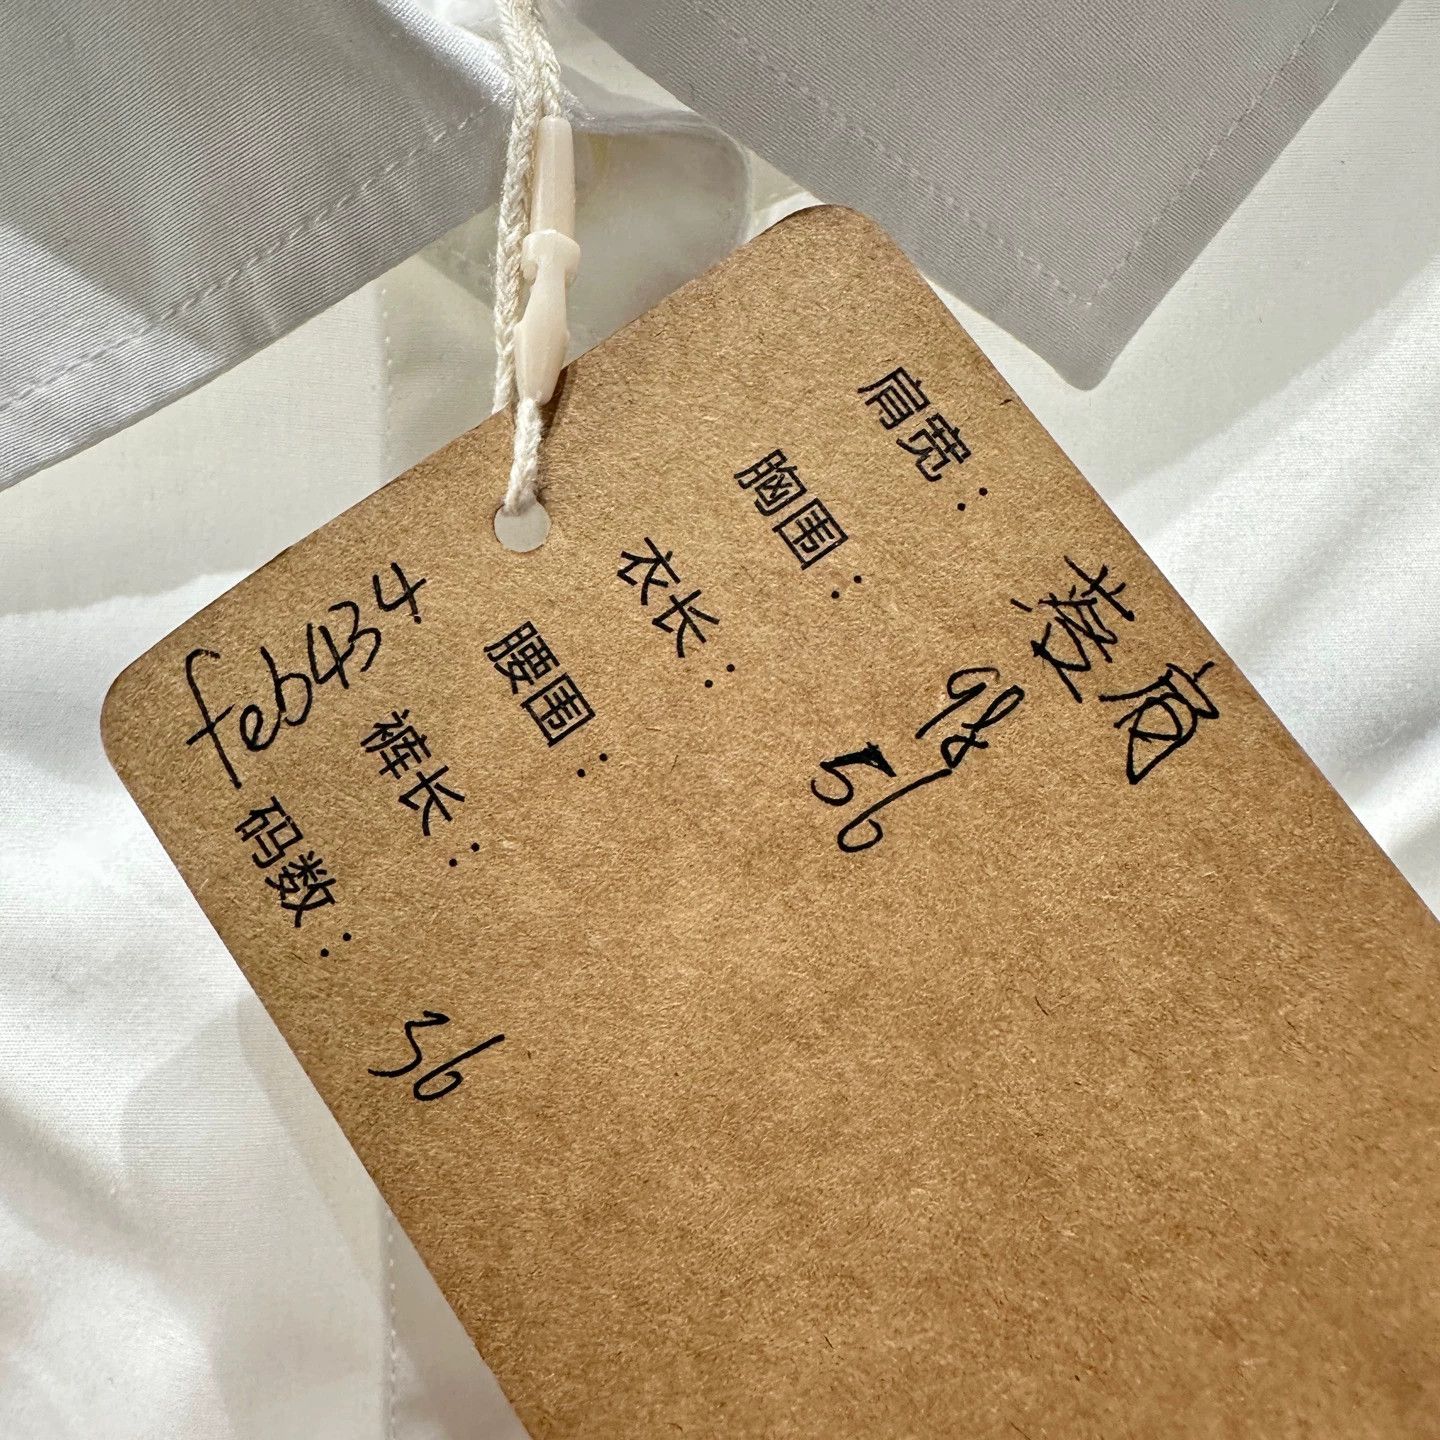 feb434
肩宽：落肩
胸围：98
衣长：56
腰围：
裤长：
码数：36